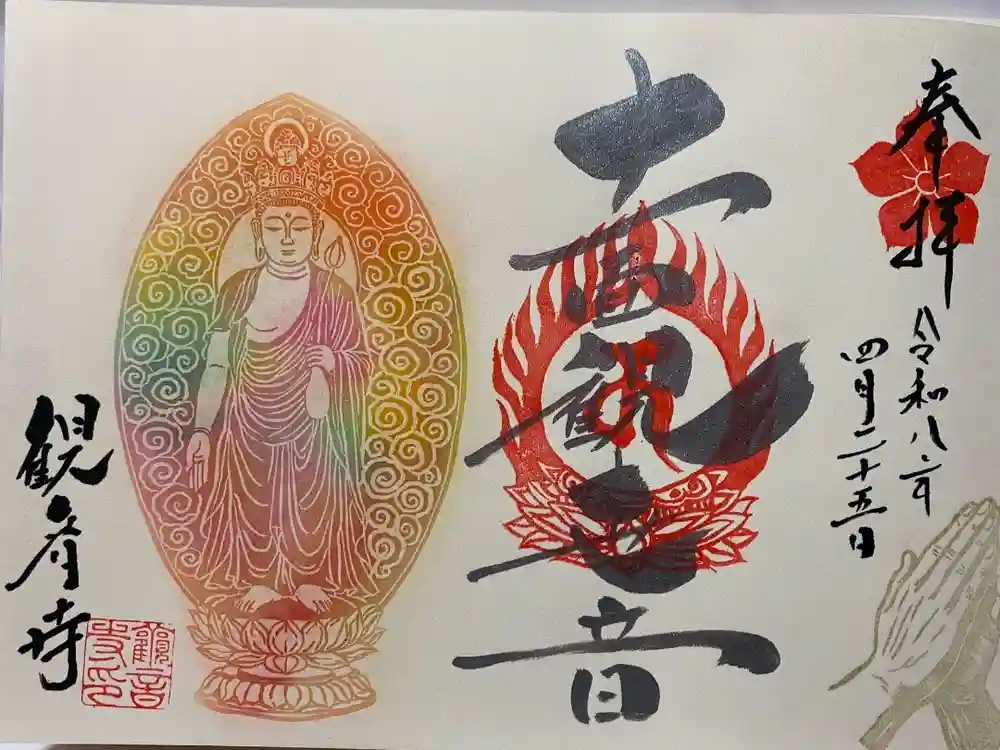 奉拝
令和八年
四月二十五日
十一面観世音
観音寺
觀音
寺印